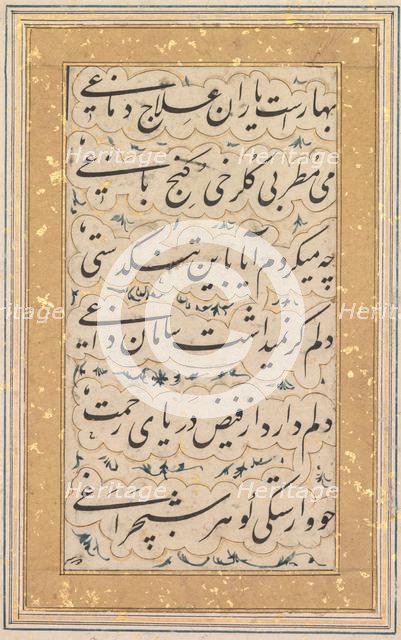 بهار است یاران علاج دماغی
می مطربی گلرخی کنج باغی
چه میکردم آیا باین تنگدستی
دلم گر نمیداشت سامان داغی
دلم دارد از فیض دریای رحمت
چو وارستگی گوهر شبچراغی
Heritage
Heritage
Heritage
Heritage
Heritage
Heritage
Heritage
Heritage